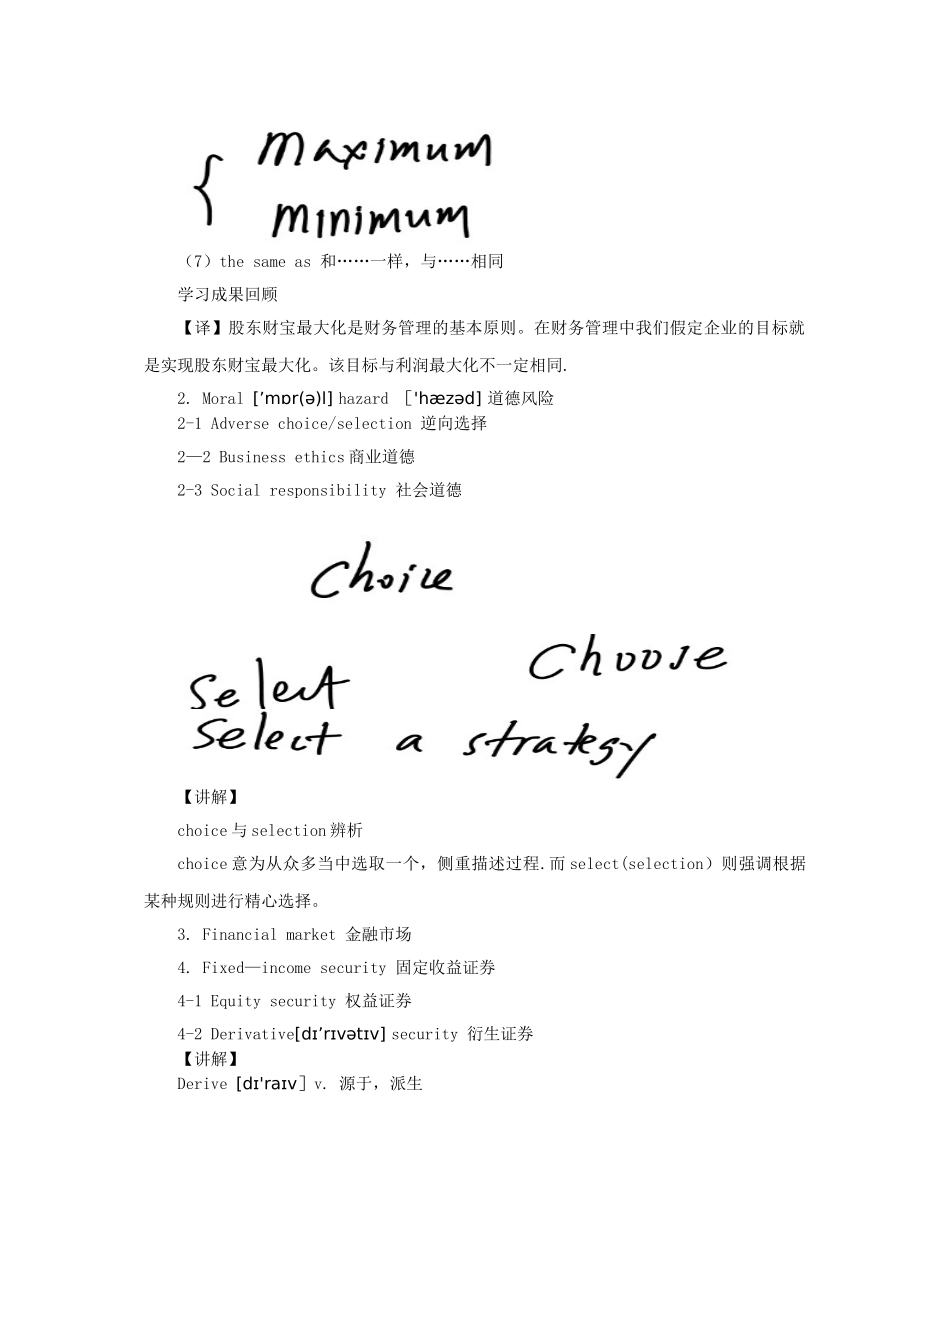 Maximum
Minimum
（7）the same as 和……一样，与……相同
学习成果回顾
【译】股东财宝最大化是财务管理的基本原则。在财务管理中我们假定企业的目标就
是实现股东财宝最大化。该目标与利润最大化不一定相同.
2. Moral [’mɒr(ə)l] hazard ［'hæzəd] 道德风险
2-1 Adverse choice/selection 逆向选择
2—2 Business ethics商业道德
2-3 Social responsibility 社会道德
Choice
Choose
Select
Select a strategy
【讲解】
choice与selection辨析
choice意为从众多当中选取一个，侧重描述过程.而select(selection）则强调根据
某种规则进行精心选择。
3. Financial market 金融市场
4. Fixed—income security 固定收益证券
4-1 Equity security 权益证券
4-2 Derivative[dɪ’rɪvətɪv] security 衍生证券
【讲解】
Derive [dɪ'raɪv］v. 源于，派生